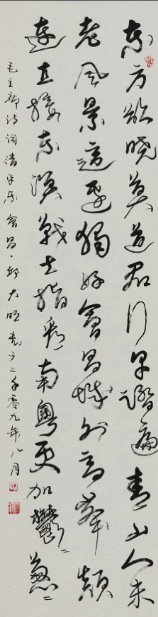 东方欲晓莫道君行早踏遍青山人未
老风景这边独好会昌城外高峰颠
连直接东溟战士指看南粤更加郁郁葱葱
毛主席诗词清平乐会昌
二千零九年八月